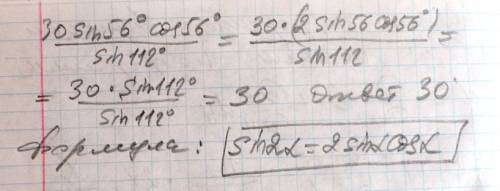 30 sin56° cos56° / sin112° = 30·(2 sin56 cos56°) / sin112 =
= 30·sin112° / sin112° = 30 ответ 30
формула: sin2α = 2sinα cosα